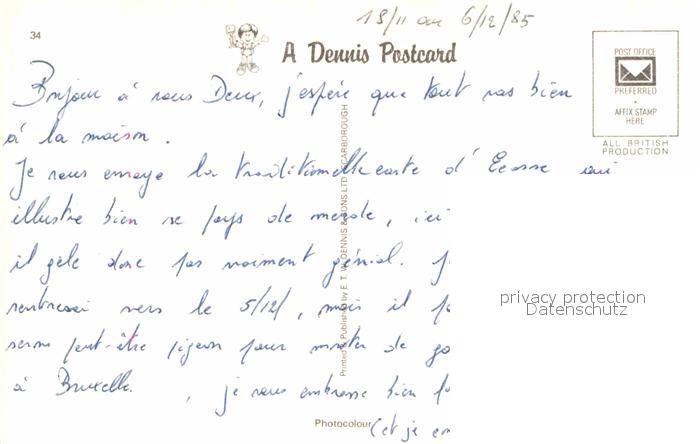 18/11 au 6/12/85
34
A Dennis Postcard
POST OFFICE
PREFERRED
AFFIX STAMP
HERE
ALL BRITISH
PRODUCTION
Bonjour à vous Deux, j'espère que tout vas bien
à la maison.
Je vous envoye la traditionnelle carte d'Ecosse qui
illustre bien se pays de merde, ici
il gèle donc pas vraiment génial. J
rentrerai vers le 5/12/, mais il
peut-être pour de
à Bruxelle. , je vous embrasse bien
(et je em
Photocolour
Printed & Published by E. T. W. DENNIS & SONS LTD SCARBOROUGH
privacy protection
Datenschutz